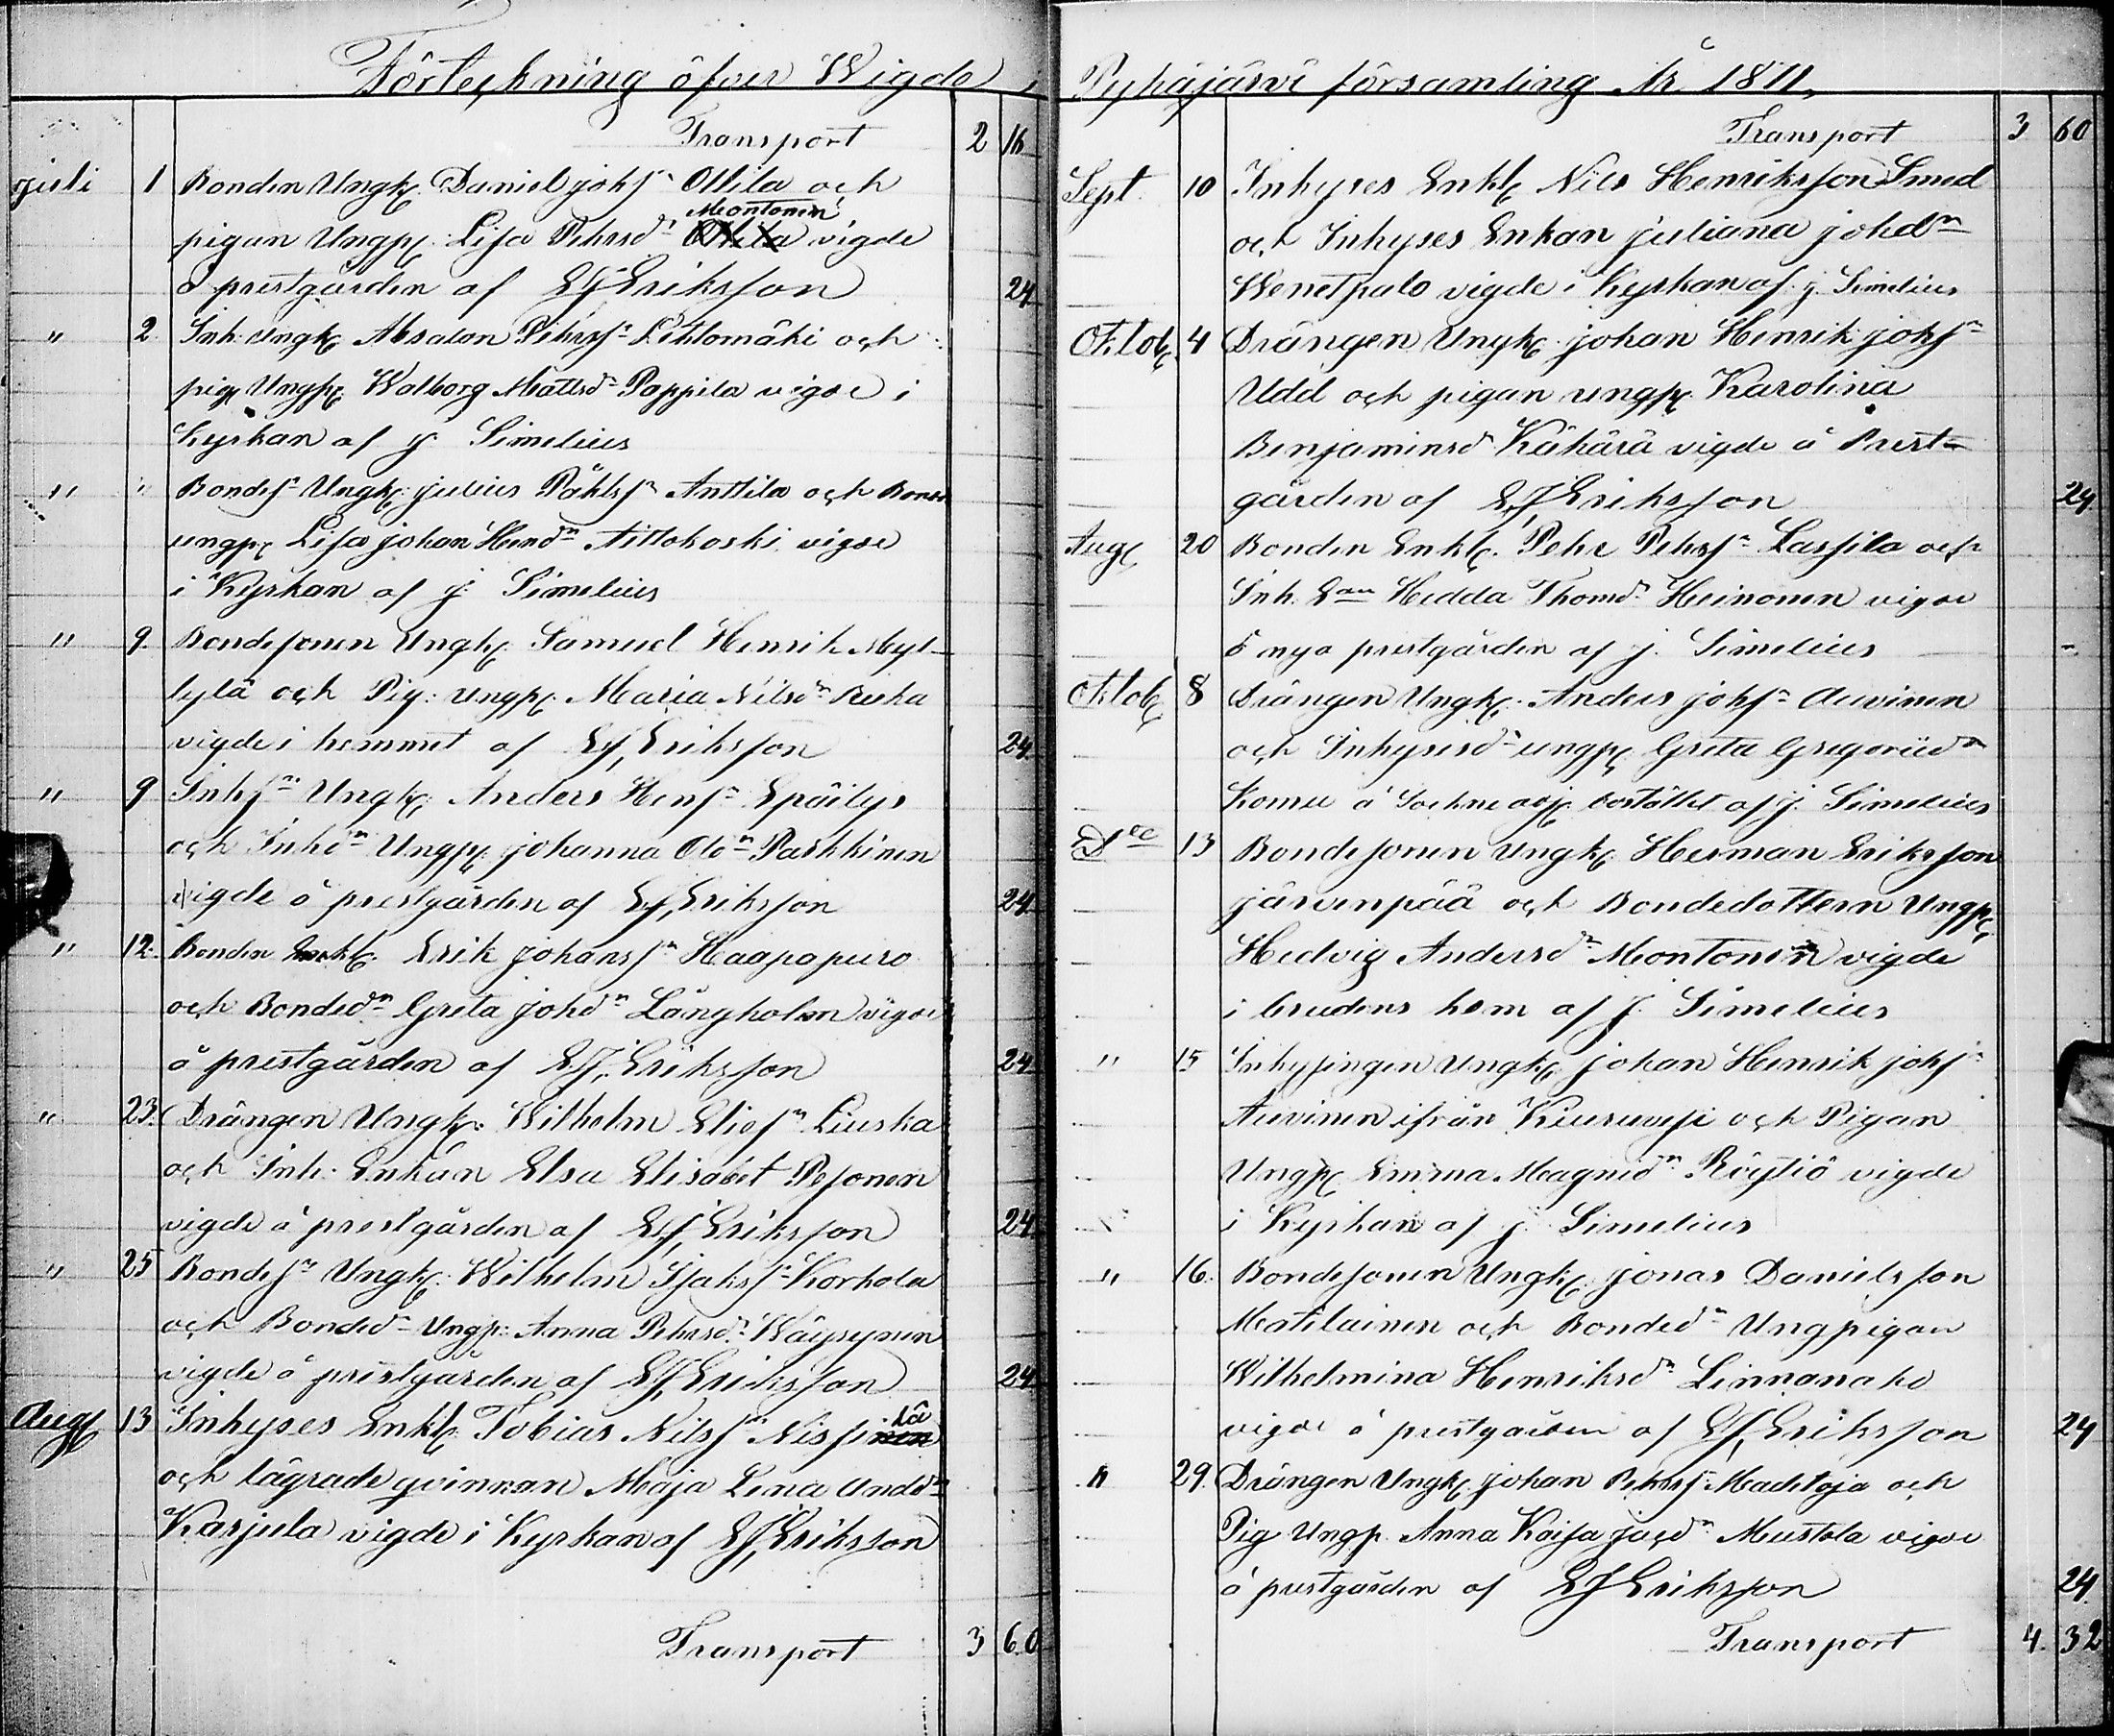 Förteckning öfver Wigde i
Transport 2 16
juli 1 Bonden Ungk. Daniel johs:n Ollila och
Montonen
pigan Ungp. Lisa Pehrsd:r Ollila vigde
å prestgården af E J Eriksson 24
" 2. Inh. Ungk. Absalon Pehrss:n Lehtomäki och
pig. Ungp. Walborg Mattsd:r Pappila vigde i
Kyrkan af J. Simelius
" " Bondes:n Ungk. julius Påhlss:n Anttila och Bonded
ungp. Lisa johan Hend:r Aittokoski vigde
i Kyrkan af J. Simelius
" 9. Bondesonen Ungk. Samuel Henrik Myl-
lylä och Pig. ungp. Maria Nilsd:r Ruha
vigde i hemmet af E J, Eriksson 24.
" 9 Inhs:n Ungk. Anders Hens:n Epäilys
och Inhd:n Ungp. johanna Old:n Parkkinen
vigde å prestgården af E J, Eriksson 24
" 12. Bonden Enkl. Erik johanss:n Haapapuro
och Bonded:n Greta johd:n Långholm vigde
å prestgården af E. J, Eriksson 24
" 23. Drängen Ungk. Wilhelm Elies:n Liuska
och Inh. Enkan Elsa Elisabet Pesonen
vigde å prestgården af E J, Eriksson 24
" 25 Bondes:n Ungk. Wilhelm Isakss:n Korhola
och Bonded:n Ungp. Anna Pehrsd:r Wäyrynen
vigde å prestgården af E J, Eriksson 24
Aug 13 Inhyses Enkl. Tobias Nilss:n Nissinen lä
och lägrade qvinnan Maja Lena Andd:r
Karjula vigde i Kyrkan af E J, Eriksson
Transport 3 60
Pyhäjärvi församling År 1871,
Transport 3 60
Sept. 10 Inhyses Enkl. Nils Henriksson Smed
och Inhyses Enkan juliana johd:n
Wenetpalo vigde i Kyrkan af J. Simelius
Oktob. 4 Drängen Ungk. johan Henrik johs:n
Udd och pigan ungp. Karolina
Benjaminsd Kähärä vigde å Prest-
gården af E, J Eriksson 24
Aug 20 Bonden Enkl. Pehr Pehrss:n Lassila och
Inh. E:an Hedda Thomd:r Heinonen vigde
å nya prestgården af J. Simelius -
Oktob 8 Drängen Ungk. Anders johs:n Auvinen
och Inhysesd:r ungp. Greta Gregoriid:r
Komu å Sockne af J. Simelius
D:o 13 Bondesonen Ungk. Herman Eriksson
järvenpää och Bondedottern Ungp.
Hedvig Andersd:r Montonen vigde
i brudens hem af J. Simelius
" 15 Inhysingen Ungk. johan Henrik johs:n
Auvinen ifrån Kiuruvesi och Pigan
Ungp. Emma Magnid:n Röytiö vigde
i Kyrkan af J. Simelius
" 16. Bondesonen Ungk. jonas Danielsson
Matilainen och Bonded:n Ungpigan
Wilhelmina Henriksd:n Linnanaho
vigde å prestgården af E J, Eriksson 24
" 29. Drängen Ungk. johan Pehrss:n Madetoja och
Pig Ungp. Anna Kaisa jacd:n Mustola vigde
å prestgården af E J Eriksson 24.
Transport 4. 32